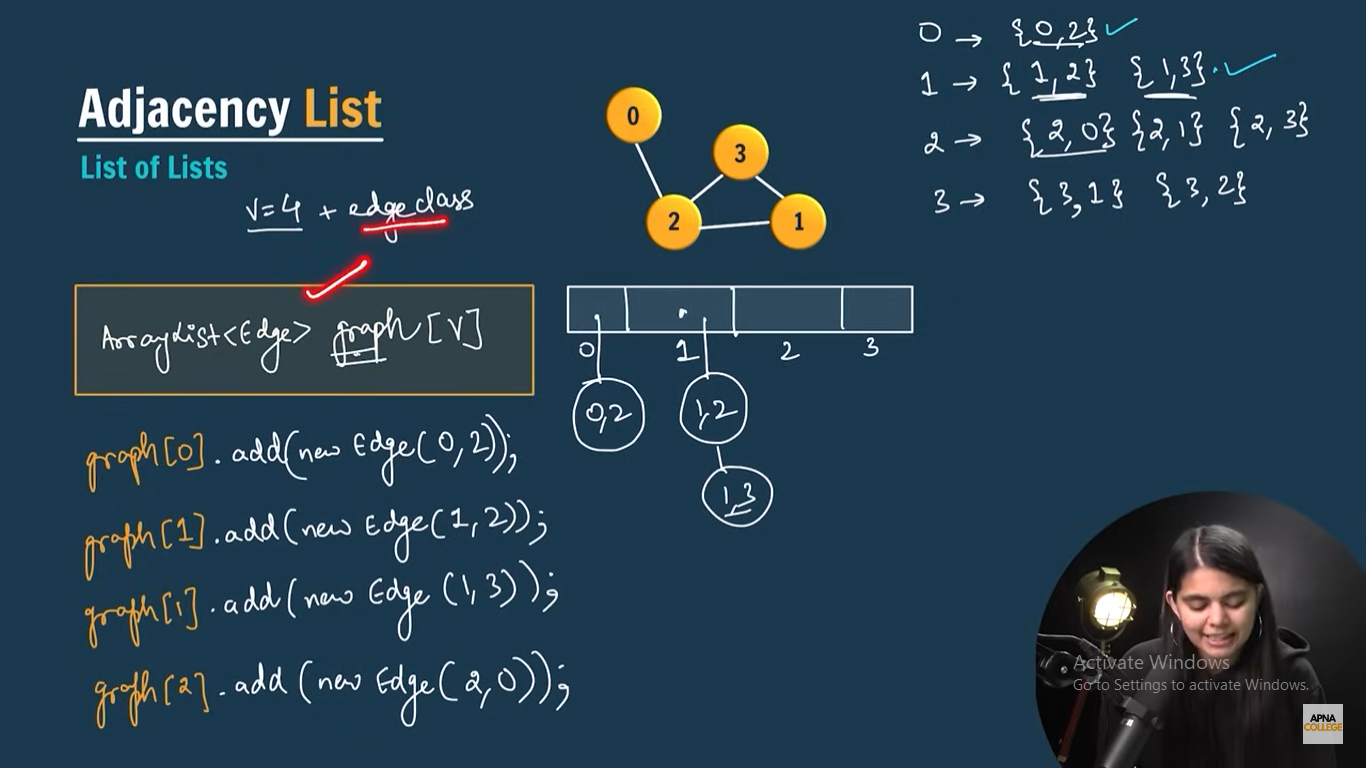 Adjacency List
List of Lists
V=4 + edge class
ArrayList<Edge> graph[V]
graph[0].add(new Edge(0,2));
graph[1].add(new Edge(1,2));
graph[1].add(new Edge(1,3));
graph[2].add(new Edge(2,0));
0
3
2
1
0 1 2 3
0,2
1,2
1,3
0 → {0,2} ✓
1 → {1,2} {1,3} ✓
2 → {2,0} {2,1} {2,3}
3 → {3,1} {3,2}
Activate Windows
Go to Settings to activate Windows.
APNA
COLLEGE